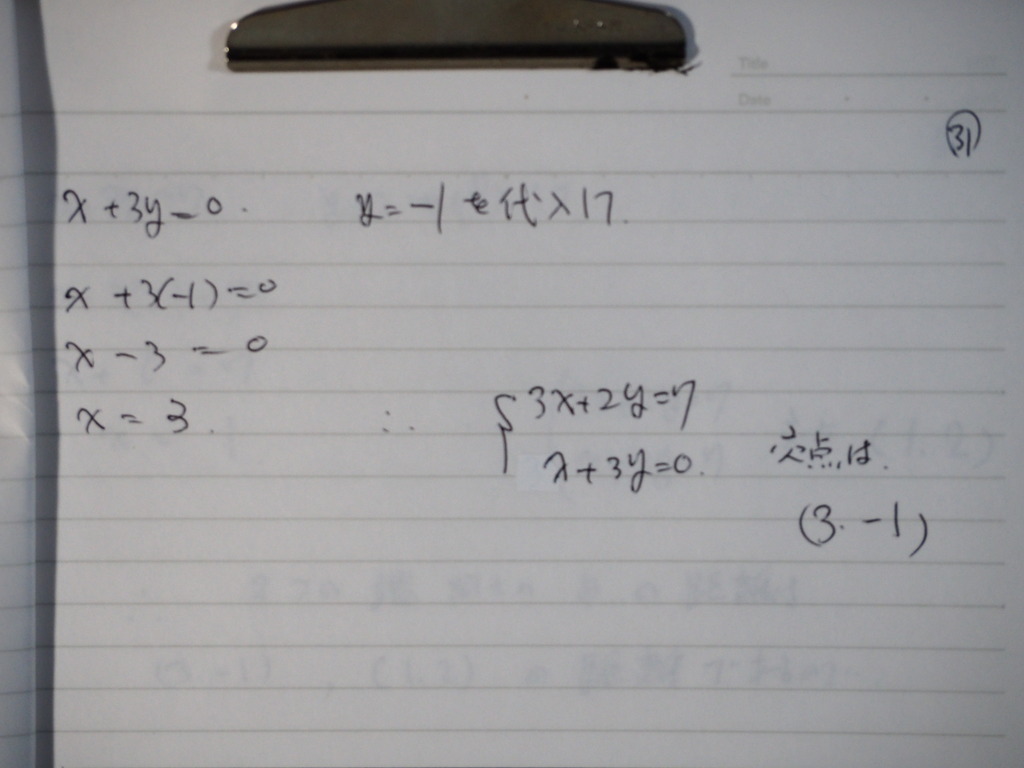 Title
Date
㉛
x + 3y = 0. y = -1 を代入して
x + 3(-1) = 0
x - 3 = 0
x = 3. ∴ { 3x + 2y = 7
x + 3y = 0. 交点は.
(3. -1)